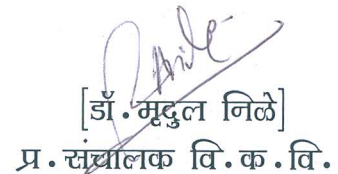 [डॉ.मृदुल निळे]
प्र.संचालक वि.क.वि.